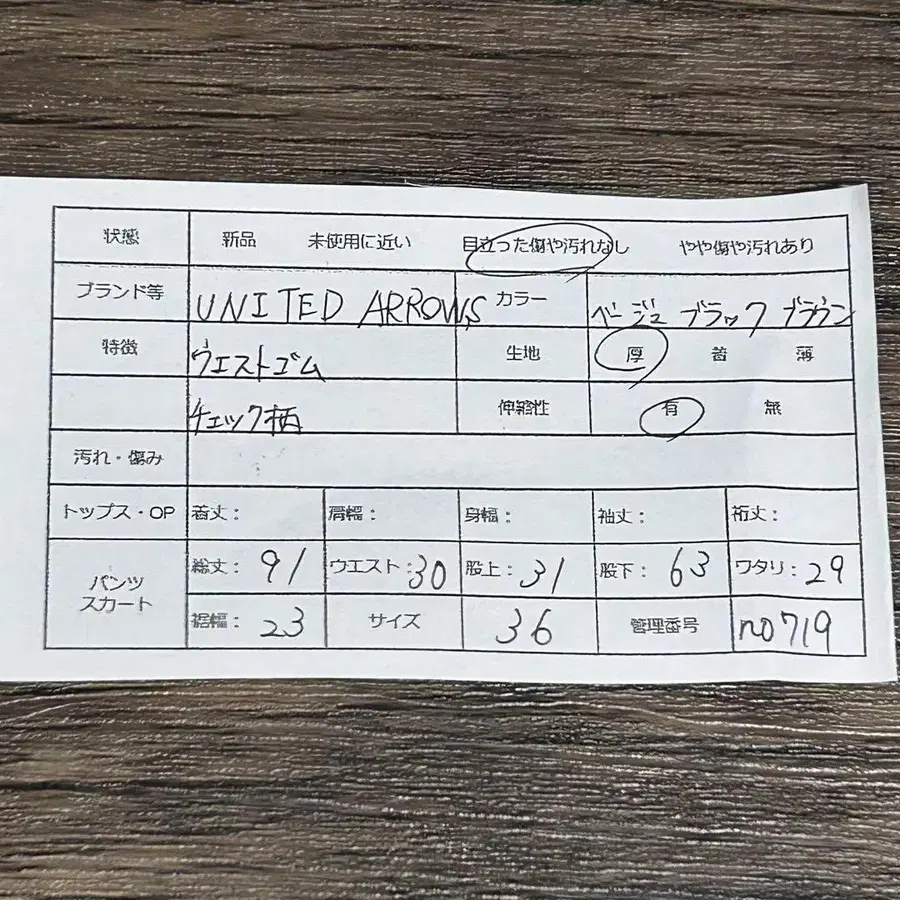 状態 新品 未使用に近い 目立った傷や汚れなし やや傷や汚れあり
ブランド等 UNITED ARROWS カラー ベージュ ブラック ブラウン
特徴 ウエストゴム 生地 厚 普 薄
チェック柄 伸縮性 有 無
汚れ・傷み
トップス・OP 着丈: 肩幅: 身幅: 袖丈: 裄丈:
パンツ スカート 総丈: 91 ウエスト: 30 股上: 31 股下: 63 ワタリ: 29
裾幅: 23 サイズ 36 管理番号 no719